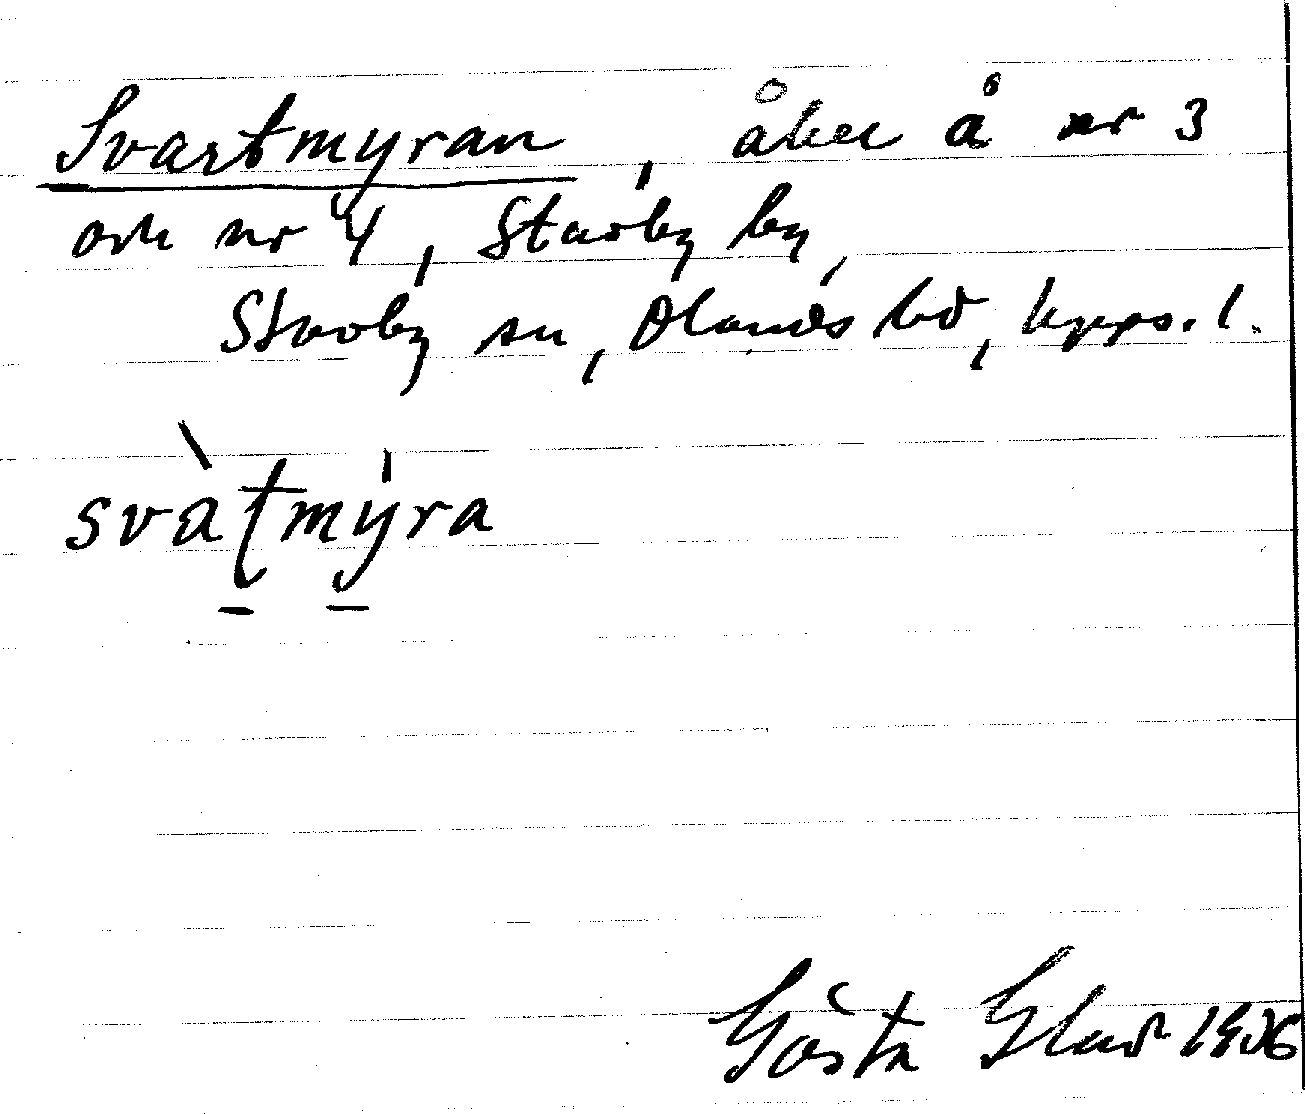 Svartmyran, åker å nr 3
och nr 4, Stavby by,
Stavby sn, Olands hd, Upps. l.
svàṭmýra
Gösta Glad 1936